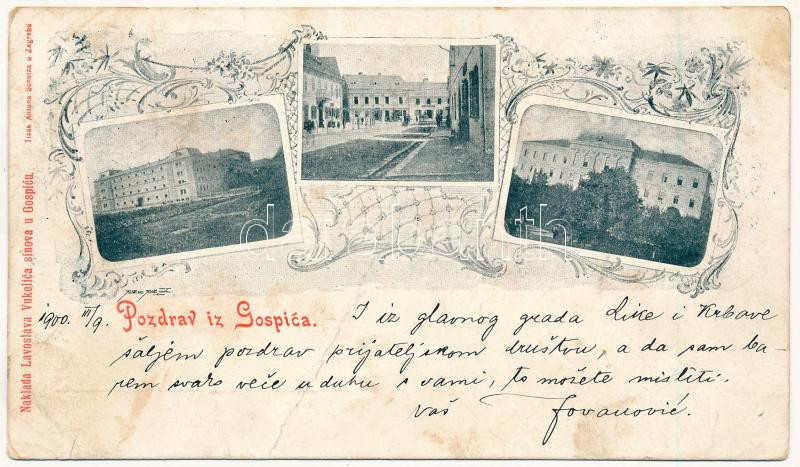 Naklada Lavoslava Vukelića sinova u Gospiću.
Tisak Antuna Scholza u Zagrebu
darabanth
1900. III/9.
Pozdrav iz Gospića.
I iz glavnog grada Like i Krbave
šaljem pozdrav prijateljskom društvu, a da sam ba-
rem svako veče u duhu s vami, to možete misliti.
Vaš Jovanović.